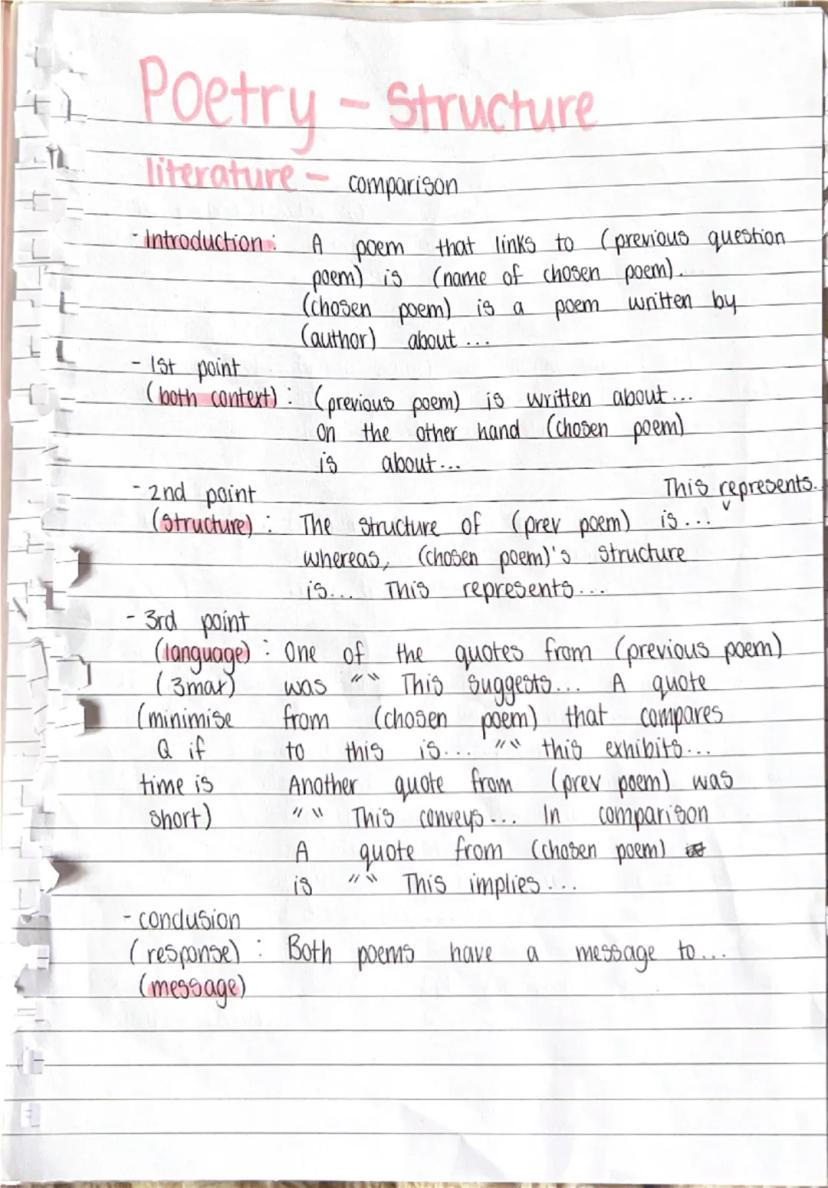 Poetry - Structure
literature - comparison
- Introduction: A poem that links to (previous question
poem) is (name of chosen poem).
(chosen poem) is a poem written by
(author) about ...
- 1st point
(both context): (previous poem) is written about...
on the other hand (chosen poem)
is about...
- 2nd point This represents.
(structure): The structure of (prev poem) is...
whereas, (chosen poem)'s structure
is... This represents...
- 3rd point
(language): One of the quotes from (previous poem)
(3max) was "" This suggests... A quote
(minimise from (chosen poem) that compares
Q if to this is... "" this exhibits...
time is Another quote from (prev poem) was
short) "" This conveys... In comparison
A quote from (chosen poem)
is "" This implies...
- conclusion
(response): Both poems have a message to...
(message)